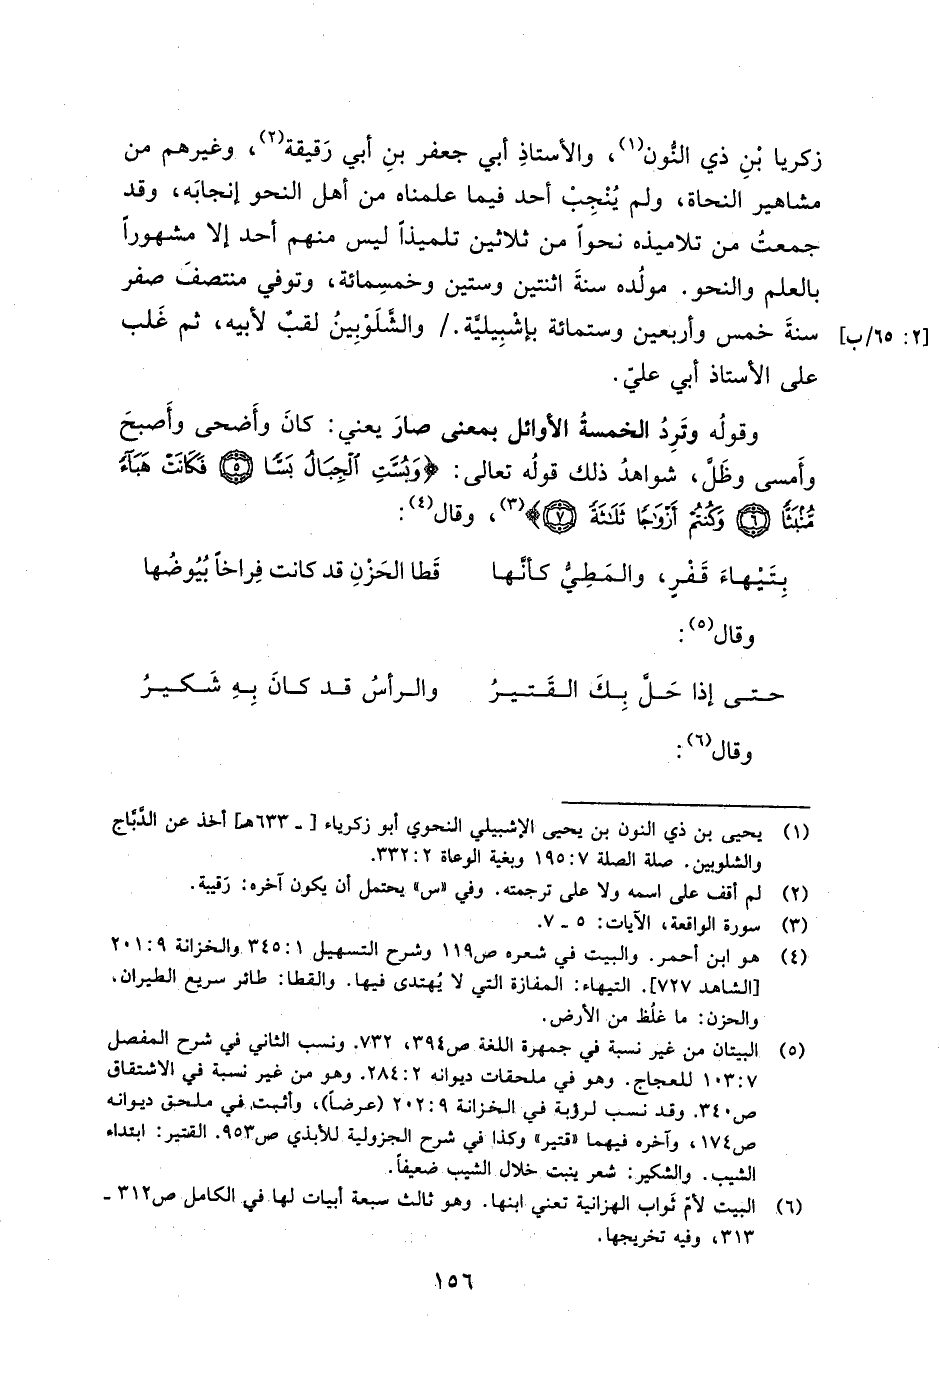 زكريا بْنِ ذي النُّون(١)، والأستاذِ أبي جعفر بنِ أبي رَقيقة(٢)، وغيرهم من
مشاهير النحاة، ولم يُنْجِبْ أحد فيما علمناه من أهل النحو إنجابَه، وقد
جمعتُ من تلاميذه نحواً من ثلاثين تلميذاً ليس منهم أحد إلا مشهوراً
بالعلم والنحو. مولُده سنةَ اثنتين وستين وخمسِمائة، وتوفي منتصفَ صفر
[٢: ٦٥/ب] سنةَ خمس وأربعين وستمائة بإشْبِيليَّة./ والشَّلَوْبِينُ لقبٌ لأبيه، ثم غَلب
على الأستاذ أبي عليّ.
وقولُه وتَرِدُ الخمسةُ الأوائل بمعنى صارَ يعني: كانَ وأَضحى وأَصبحَ
وأَمسى وظَلَّ، شواهدُ ذلك قولُه تعالى: ﴿وَبُسَّتِ ٱلْجِبَالُ بَسًّا ۝٥ فَكَانَتْ هَبَآءً
مُّنۢبَثًّا ۝٦ وَكُنتُمْ أَزْوَٰجًا ثَلَٰثَةً ۝٧﴾(٣)، وقال(٤):
بِتَيْهاءَ قَفْرٍ، والمَطِيُّ كأنَّها قَطا الحَزْنِ قد كانت فِراخاً بُيُوضُها
وقال(٥):
حتى إذا حَلَّ بِكَ القَتيرُ والرأسُ قد كانَ بِهِ شَكيرُ
وقال(٦):
(١) يحيى بن ذي النون بن يحيى الإشبيلي النحوي أبو زكرياء [ ـ ٦٣٣هـ] أخذ عن الدَّبَّاج
والشلوبين. صلة الصلة ٧: ١٩٥ وبغية الوعاة ٢: ٣٣٢.
(٢) لم أقف على اسمه ولا على ترجمته. وفي «س» يحتمل أن يكون آخره: رَقيبة.
(٣) سورة الواقعة، الآيات: ٥ ـ ٧.
(٤) هو ابن أحمر. والبيت في شعره ص١١٩ وشرح التسهيل ١: ٣٤٥ والخزانة ٩: ٢٠١
[الشاهد ٧٢٧]. التيهاء: المفازة التي لا يُهتدى فيها. والقطا: طائر سريع الطيران،
والحزن: ما غلُظ من الأرض.
(٥) البيتان من غير نسبة في جمهرة اللغة ص٣٩٤، ٧٣٢. ونسب الثاني في شرح المفصل
٧: ١٠٣ للعجاج. وهو في ملحقات ديوانه ٢: ٢٨٤. وهو من غير نسبة في الاشتقاق
ص٣٤٠. وقد نسب لرؤبة في الخزانة ٩: ٢٠٢ (عرضاً)، وأثبت في ملحق ديوانه
ص١٧٤، وآخره فيهما «قتير» وكذا في شرح الجزولية للأبذي ص٩٥٣. القتير: ابتداء
الشيب. والشكير: شعر ينبت خلال الشيب ضعيفاً.
(٦) البيت لأمّ ثَواب الهزانية تعني ابنها. وهو ثالث سبعة أبيات لها في الكامل ص٣١٢ ـ
٣١٣، وفيه تخريجها.
١٥٦